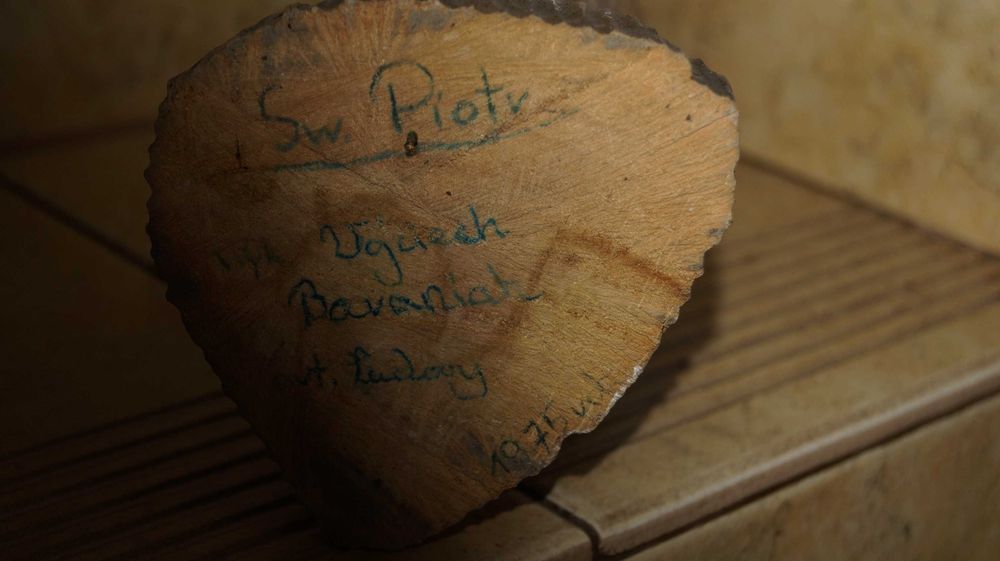 Św. Piotr
Wojciech
Baraniak
art. Ludowy
1975